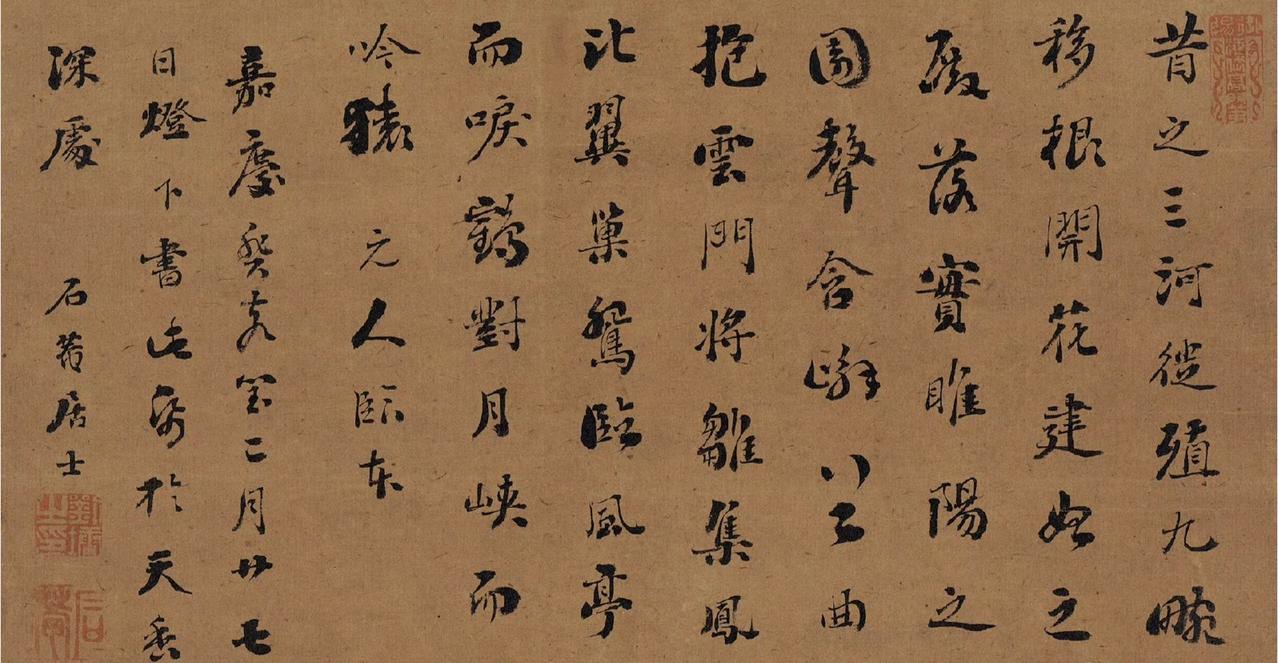 昔之三河徙殖九畹
移根開花建始之
殿落實睢陽之
園聲含嶰谷曲
抱雲門將雛集鳳
比翼巢鴛臨風亭
而唳鶴對月峽而
吟猿 元人臨本
嘉慶癸亥閏二月廿七
日燈下書此於天香
深處 石菴居士
石菴